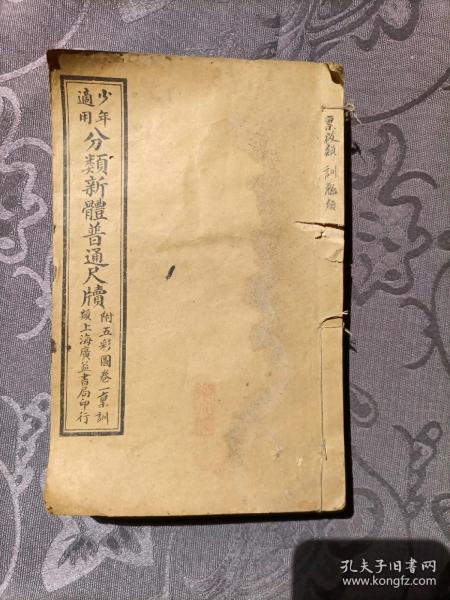 少年
適用
分類新體普通尺牘
附五彩圖卷一稟訓
類上海廣益書局印行
稟啟類 訓勉類
孔夫子旧书网
www.kongfz.com